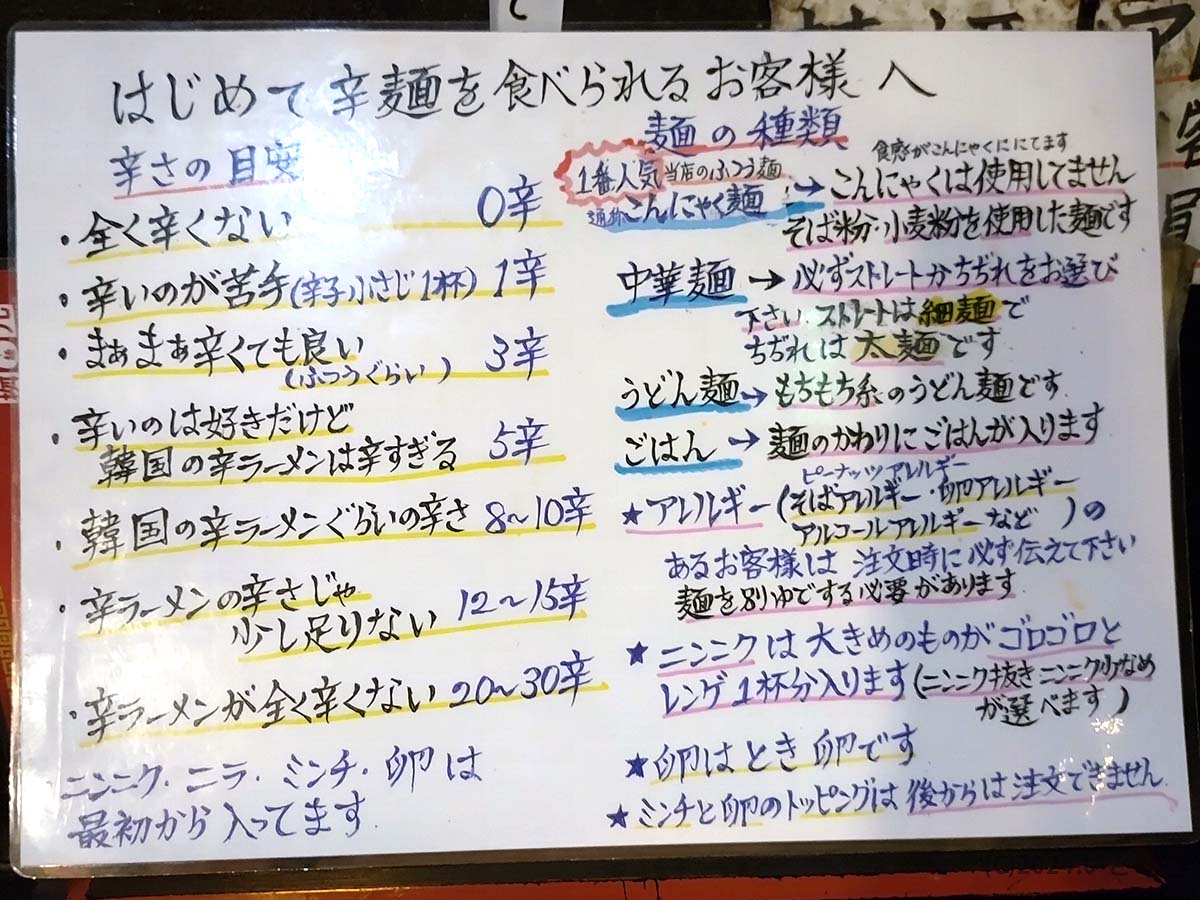 はじめて辛麺を食べられるお客様へ
辛さの目安
・全く辛くない 0辛
・辛いのが苦手(辛子小さじ1杯) 1辛
・まぁまぁ辛くても良い 3辛
(ふつうぐらい)
・辛いのは好きだけど
韓国の辛ラーメンは辛すぎる 5辛
・韓国の辛ラーメンぐらいの辛さ 8〜10辛
・辛ラーメンの辛さじゃ
少し足りない 12〜15辛
・辛ラーメンが全く辛くない 20〜30辛
ニンニク・ニラ・ミンチ・卵は
最初から入ってます
麺の種類
1番人気 当店のふつう麺
食感がこんにゃくににてます
通称こんにゃく麺 → こんにゃくは使用してません
そば粉・小麦粉を使用した麺です
中華麺 → 必ずストレートかちぢれをお選び
下さい。ストレートは細麺で
ちぢれは太麺です
うどん麺 → もちもち系のうどん麺です
ごはん → 麺のかわりにごはんが入ります
ピーナッツアレルギー
★アレルギー(そばアレルギー・卵アレルギー
アルコールアレルギーなど)の
あるお客様は注文時に必ず伝えて下さい
麺を別ゆでする必要があります
★ニンニクは大きめのものがゴロゴロと
レンゲ1杯分入ります(ニンニク抜きニンニク少なめ
が選べます)
★卵はとき卵です
★ミンチと卵のトッピングは後からは注文できません